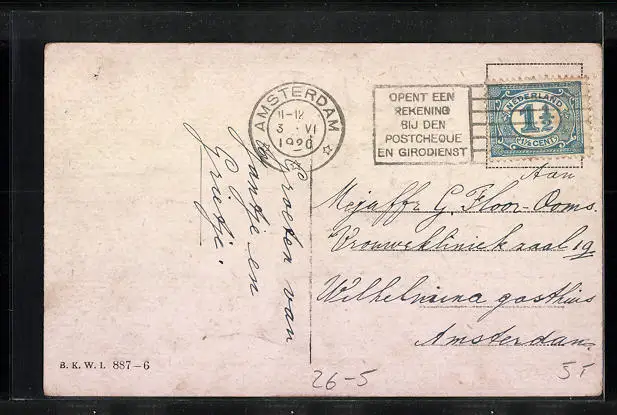 AMSTERDAM
11-12
3 . VI
1926
OPENT EEN
REKENING
BIJ DEN
POSTCHEQUE
EN GIRODIENST
NEDERLAND
1½
1½ CENT
Aan
Mejuffr G. Floor-Ooms.
Vrouwekliniek zaal 19
Wilhelmina gasthuis
Amsterdam
Groeten van
Jantje en
Grietje.
B. K. W. I. 887-6
26-5